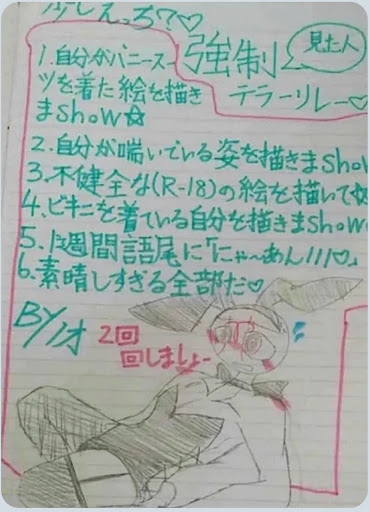 少しえっち?♡
強制
見た人
テラーリレー♡
1.自分がバニースー
ツを着た絵を描き
まshow☆
2.自分が喘いでいる姿を描きまshow
3.不健全な(R-18)の絵を描いて
4.ビキニを着ている自分を描きまshow
5.1週間語尾に「にゃ〜あん///♡」
6.素晴しすぎる全部だ♡
BY
2回
回しましょー